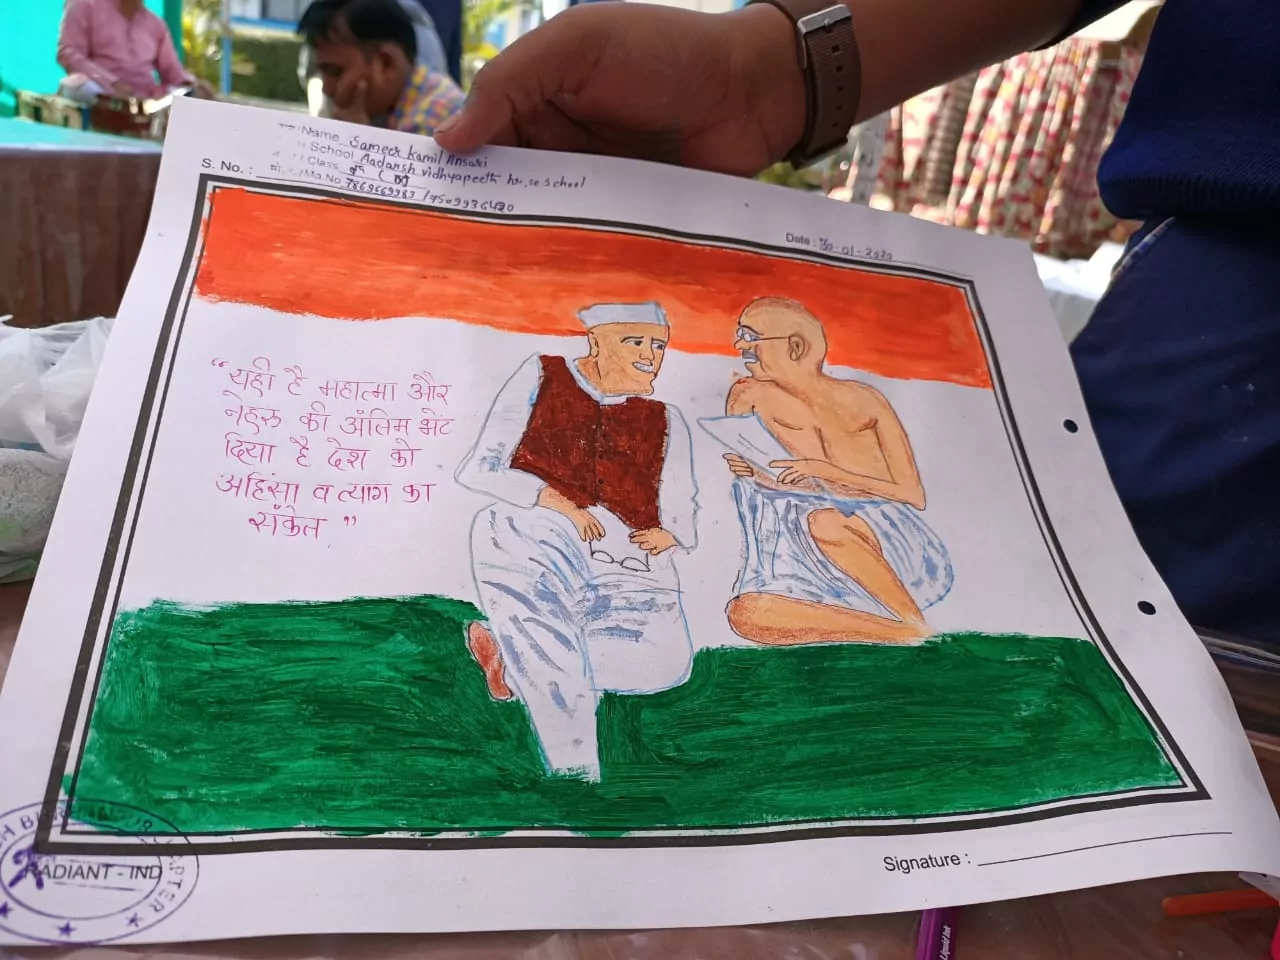 Name Sameer Kamil Ansari
School Aadarsh vidhyapeeth hr,se school
S. No. :
Class
Mo.No. 7869669983 / 7509936420
Date : 30-01-2020
“यही है महात्मा और
नेहरू की अंतिम भेंट
दिया है देश को
अहिंसा व त्याग का
संकेत ”
RADIANT - IND
Signature :